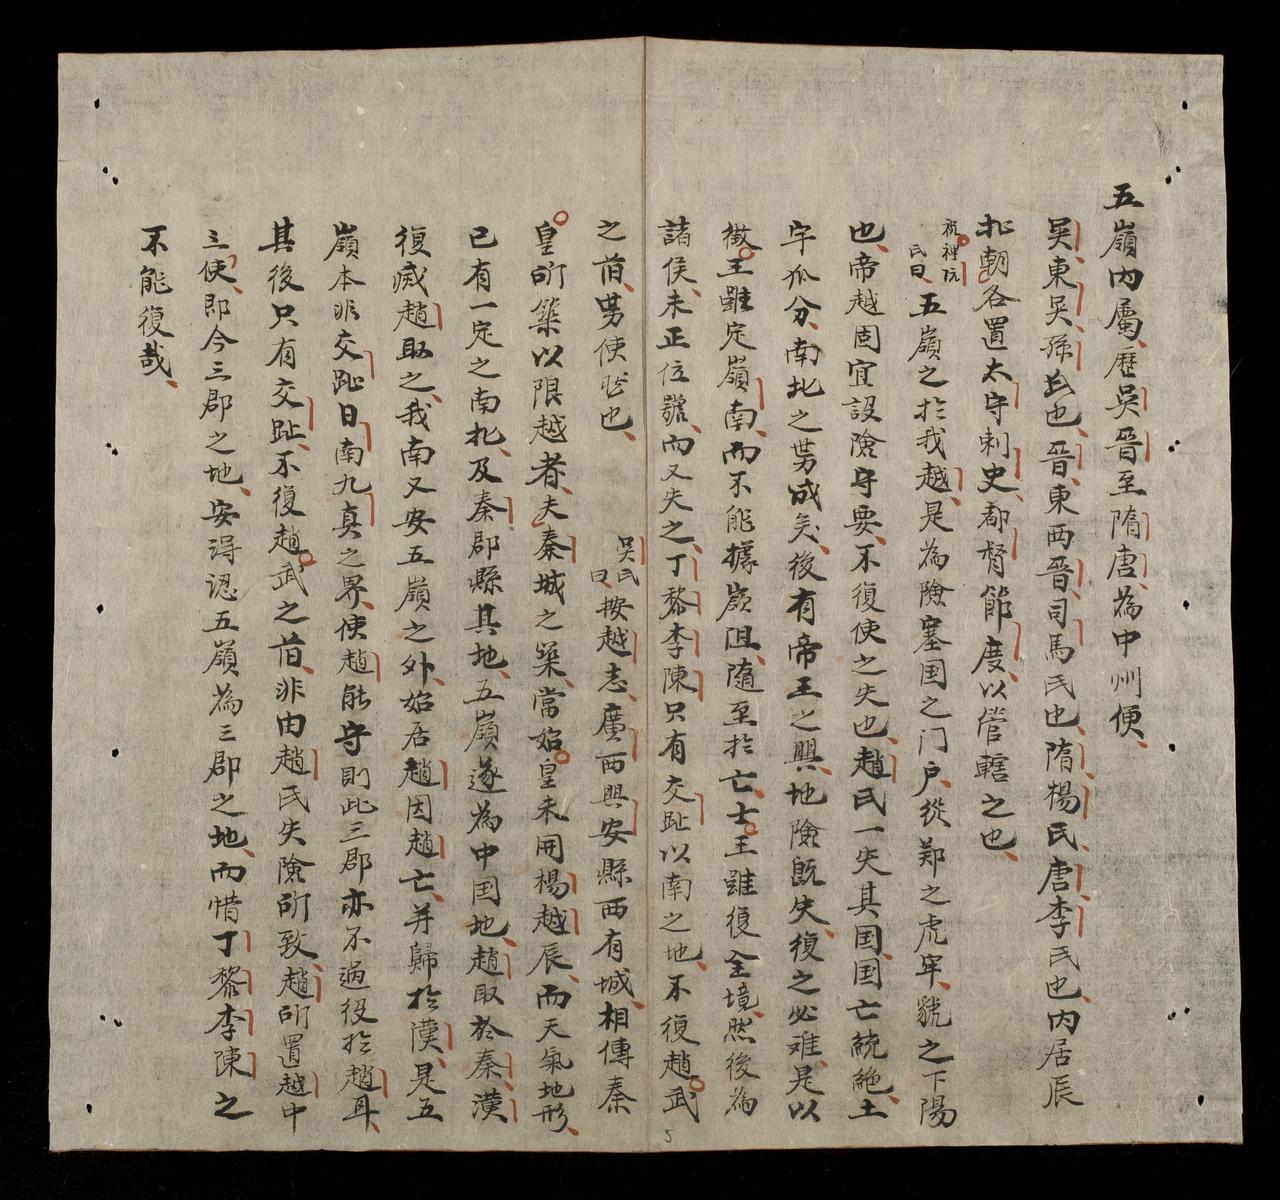 五嶺内屬歴吳晉至隋唐為中州便
吳東吳孫氏也晉東西晉司馬氏也隋楊氏唐李氏也内居辰
北朝各置太守刺史都督節度以管轄之也
祝裡阮
氏曰
五嶺之於我越是為險塞国之门户從郑之虎牢虢之下陽
也帝越固宜設險守要不復使之失也趙氏一失其国国亡統絶土
宇瓜分南北之势成矣後有帝王之興地險既失復之必难是以
徵王雖定嶺南而不能據嶺阻隨至於亡士王雖復全境然後為
諸侯未正位號而又失之丁黎李陳只有交趾以南之地不復趙武
之前势使然也
吳氏
曰
按越志廣西興安縣西有城相傳秦
皇所築以限越者夫秦城之築當始皇未開楊越辰而天氣地形
已有一定之南北及秦郡縣其地五嶺遂為中国地趙取於秦漢
復滅趙取之我南又安五嶺之外始居趙因趙亡并歸於漢是五
嶺本非交趾日南九真之界使趙能守則此三郡亦不過役於趙耳
其後只有交趾不復趙武之前非由趙氏失險所致趙所置越中
三使即今三郡之地安得認五嶺為三郡之地而惜丁黎李陳之
不能復哉